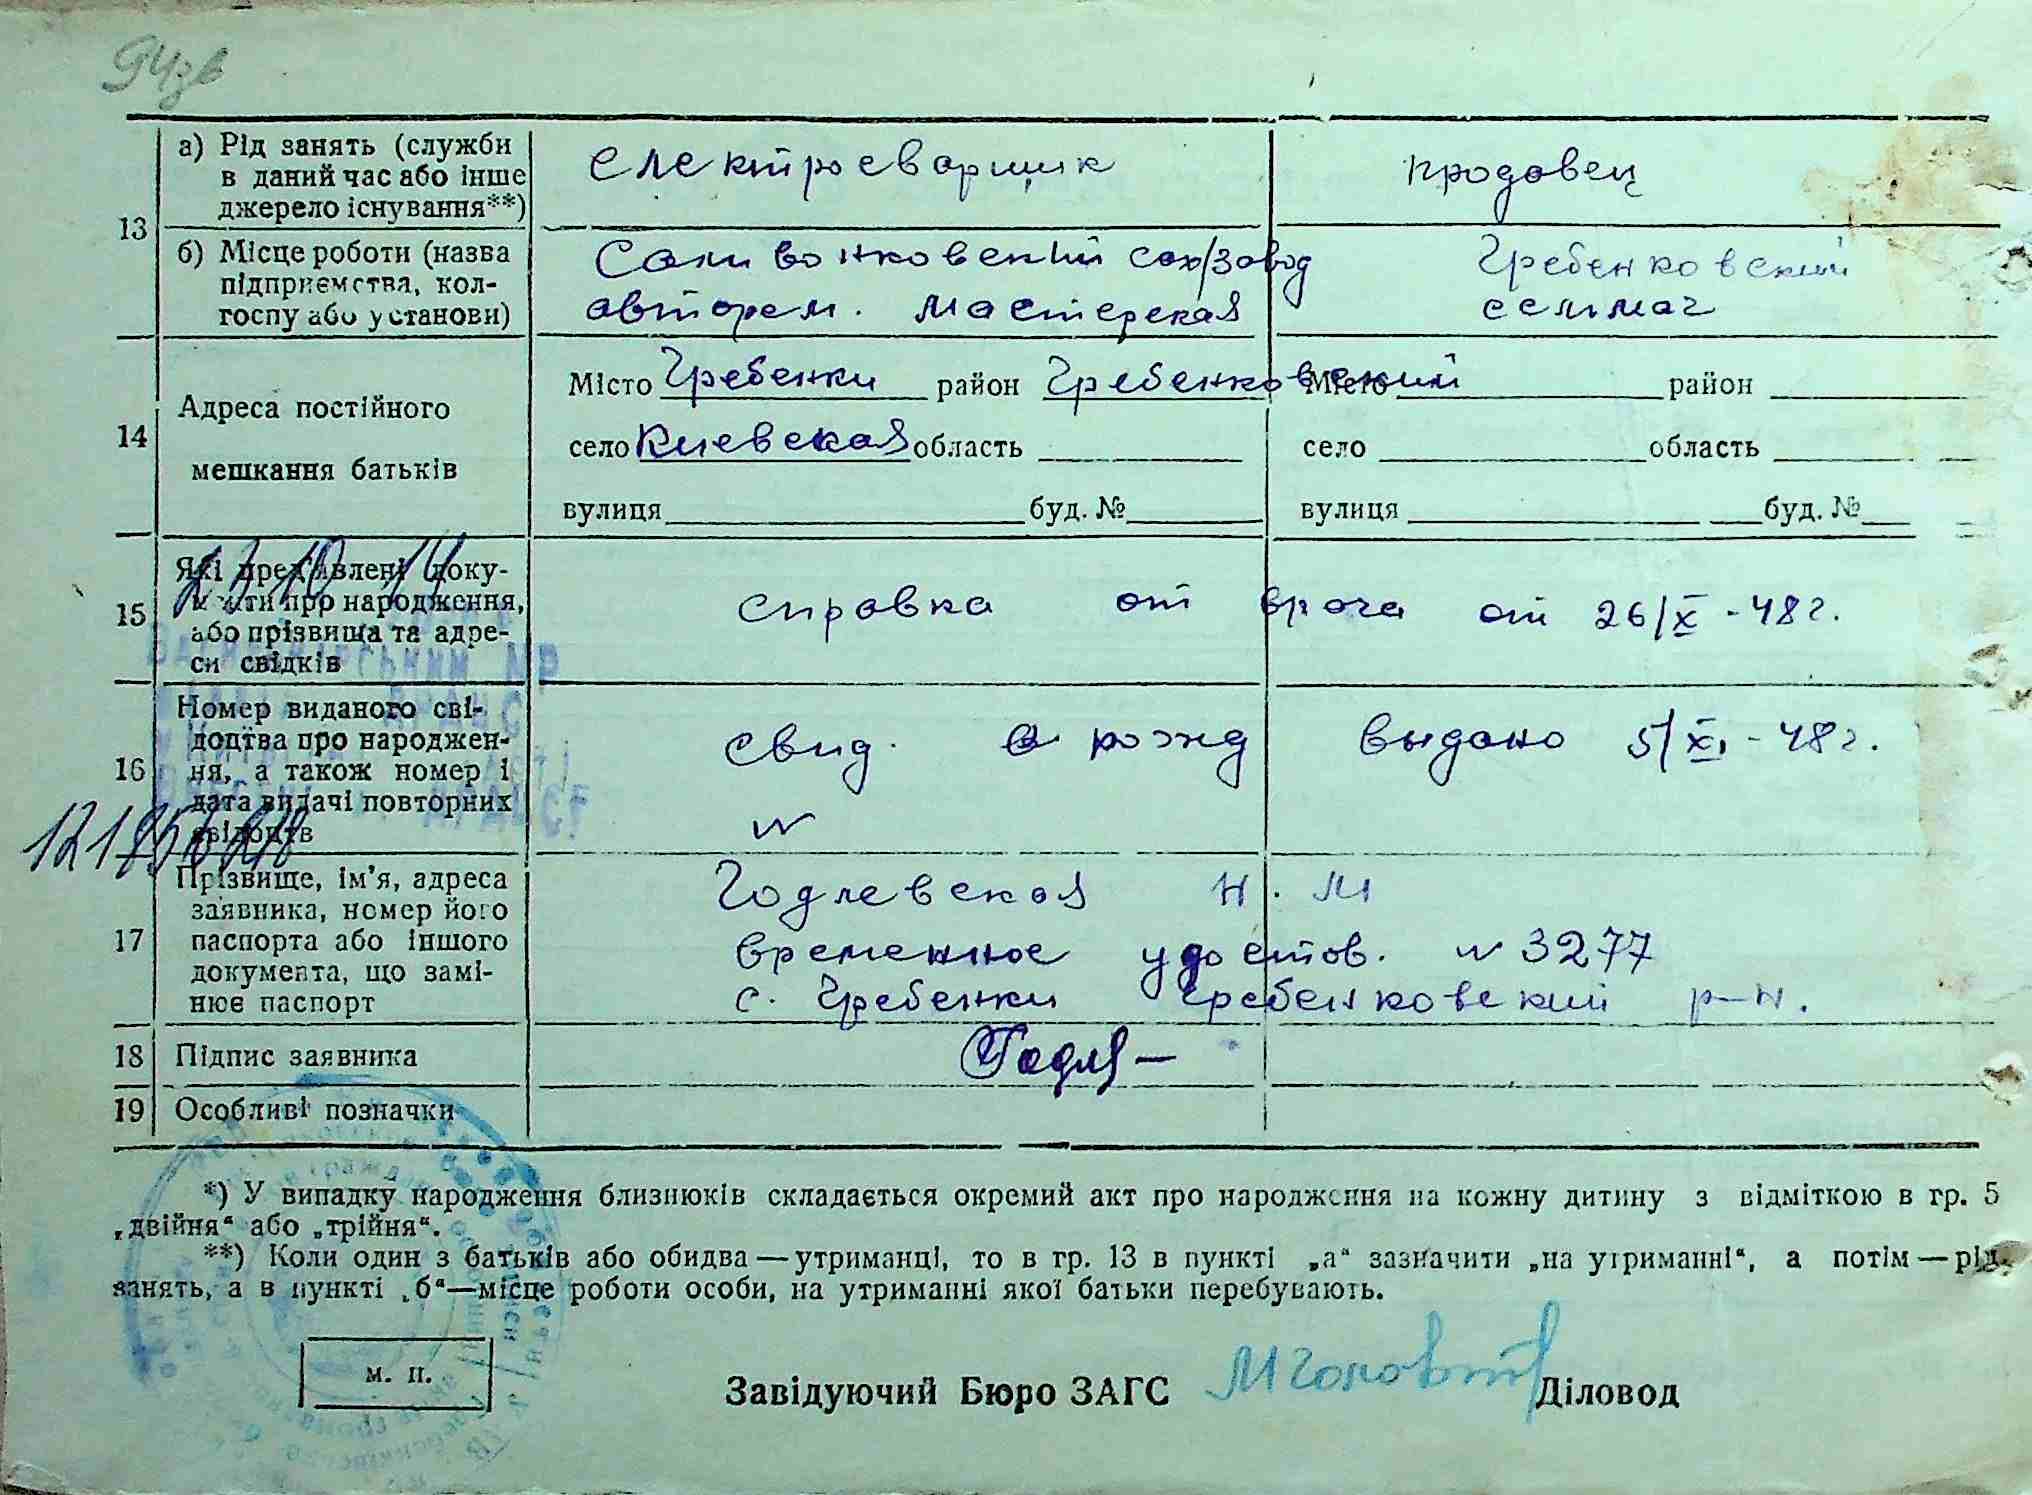 а) Рід занять (служби
в даний час або інше
джерело існування**)
електросварщик
продовец
13
б) Місце роботи (назва
підприємства, кол-
госпу або установи)
Саливонковский сах/завод
авторем. мастерская
Гребенковский
сельмаг
14
Адреса постійного
мешкання батьків
Місто Гребенки район Гребенковский
село Киевская область
вулиця буд. №
Місто район
село область
вулиця буд. №
15
Які пред'явлені доку-
менти про народження,
або прізвища та адре-
си свідків
справка от врача от 26/X - 48 г.
16
Номер виданого сві-
доцтва про народжен-
ня, а також номер і
дата видачі повторних
свідоцтв
свид. о рожд выдано 5/XI - 48 г.
N
17
Прізвище, ім'я, адреса
заявника, номер його
паспорта або іншого
документа, що замі-
нює паспорт
Годлевская Н. М
временное удостов. N 3277
с. Гребенки Гребенковский р-н.
18 Підпис заявника
Годл
19 Особливі позначки
*) У випадку народження близнюків складається окремий акт про народження на кожну дитину з відміткою в гр. 5
„двійня“ або „трійня“.
**) Коли один з батьків або обидва — утриманці, то в гр. 13 в пункті „а“ зазначити „на утриманні“, а потім — рід
занять, а в пункті „б“ — місце роботи особи, на утриманні якої батьки перебувають.
м. п.
Завідуючий Бюро ЗАГС Діловод